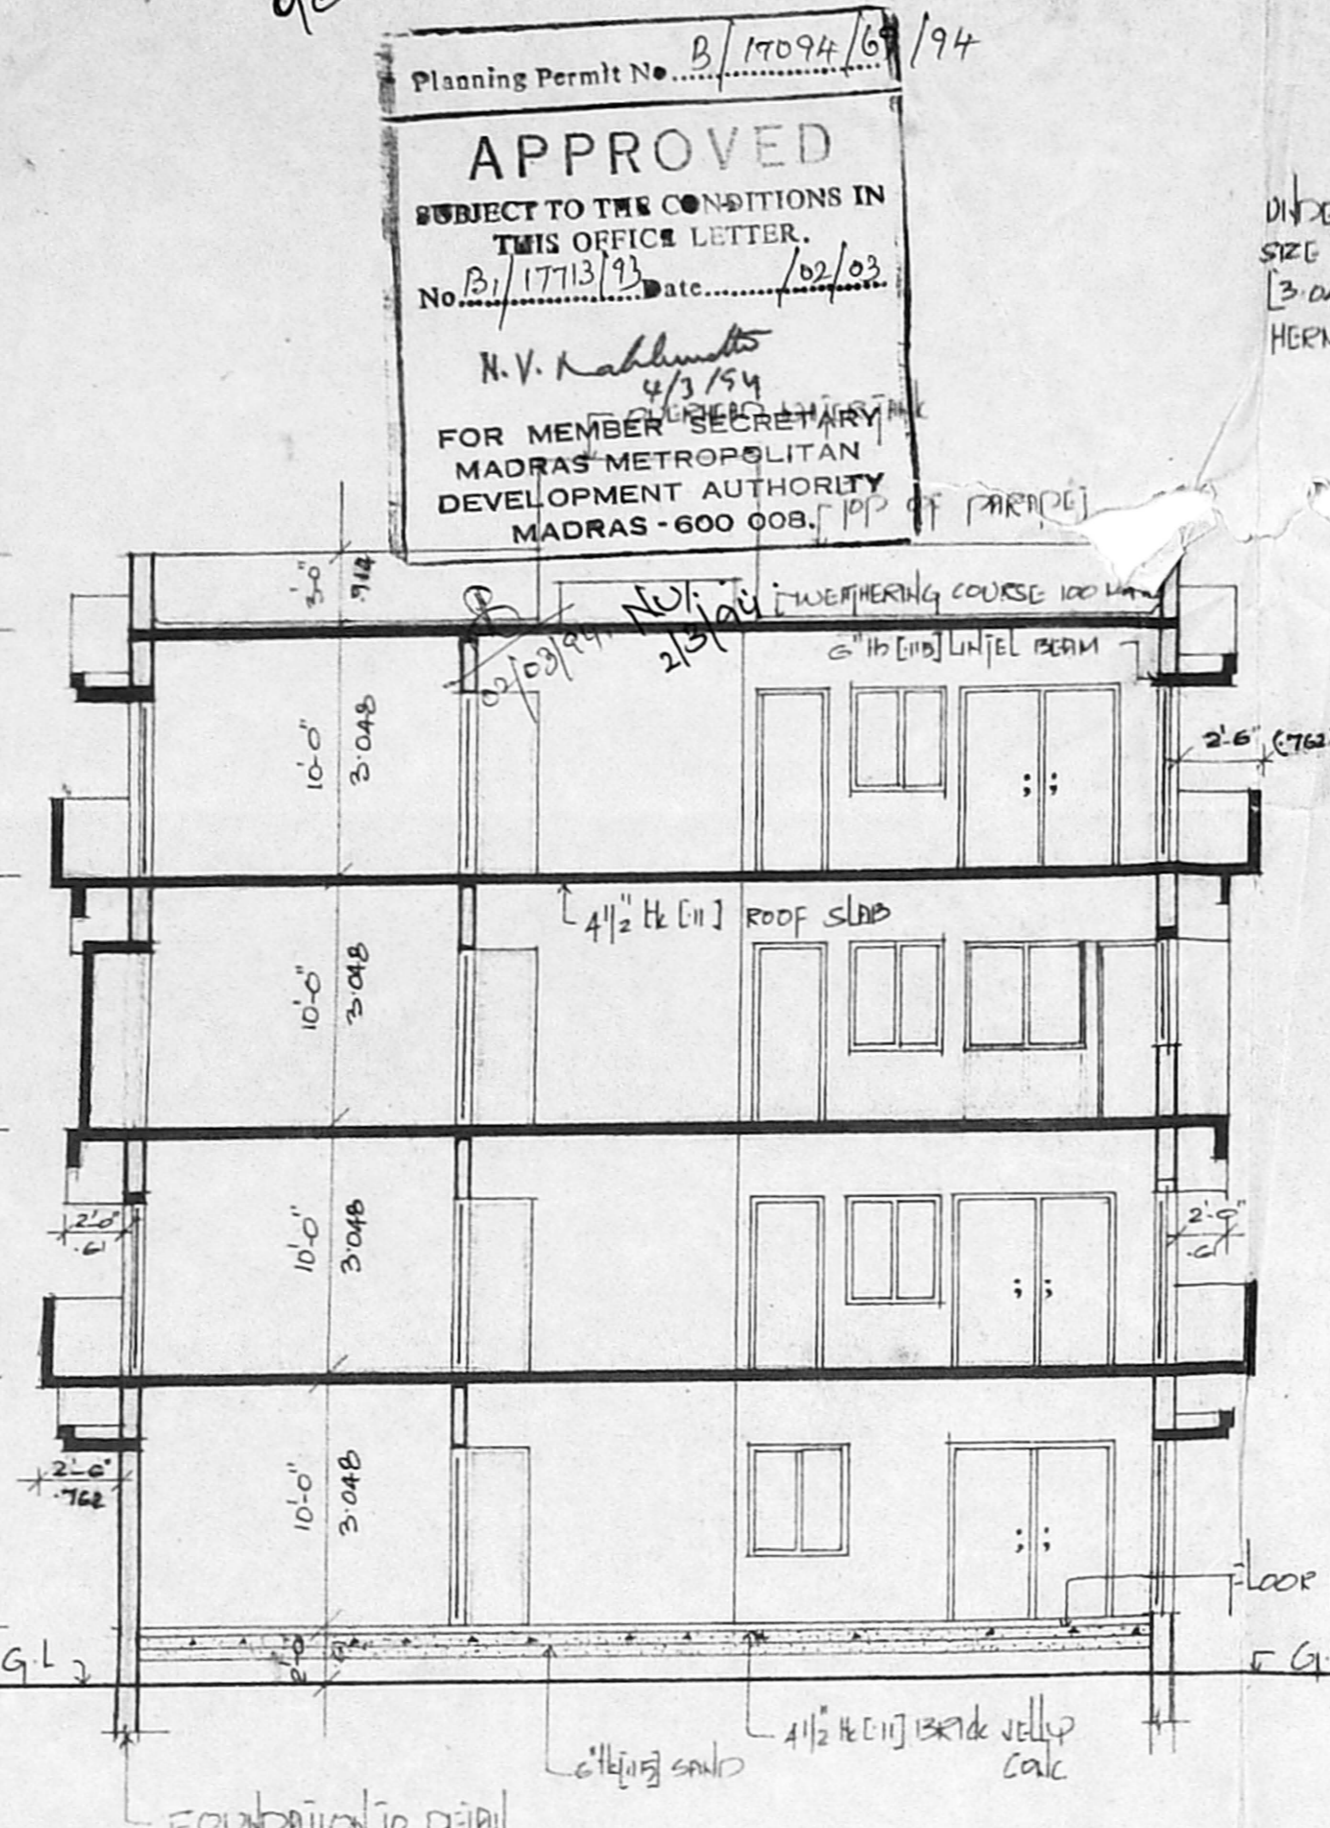 Planning Permit No. B/17094/69/94
APPROVED
SUBJECT TO THE CONDITIONS IN
THIS OFFICE LETTER.
No. B1/17713/93 Date /02/03
N.V.
4/3/94
OVERHEAD WATER TANK
FOR MEMBER SECRETARY
MADRAS METROPOLITAN
DEVELOPMENT AUTHORITY
MADRAS - 600 008.
SIZE
TOP OF PARAPET
3'-0" .914
02/03/94
2/3/94
WEATHERING COURSE 100
6" th [.115] LINTEL BEAM
10'-0" 3.048
2'-6" (.762
4 1/2" tk [.11] ROOF SLAB
10'-0" 3.048
10'-0" 3.048
2'-0" .61
2'-0" .61
2'-6" .762
10'-0" 3.048
FLOOR
2'-0"
G.L
G.
4 1/2" tk [.11] BRICK JELLY
CONC
6" tk [.115] SAND
FOUNDATION TO DETAIL